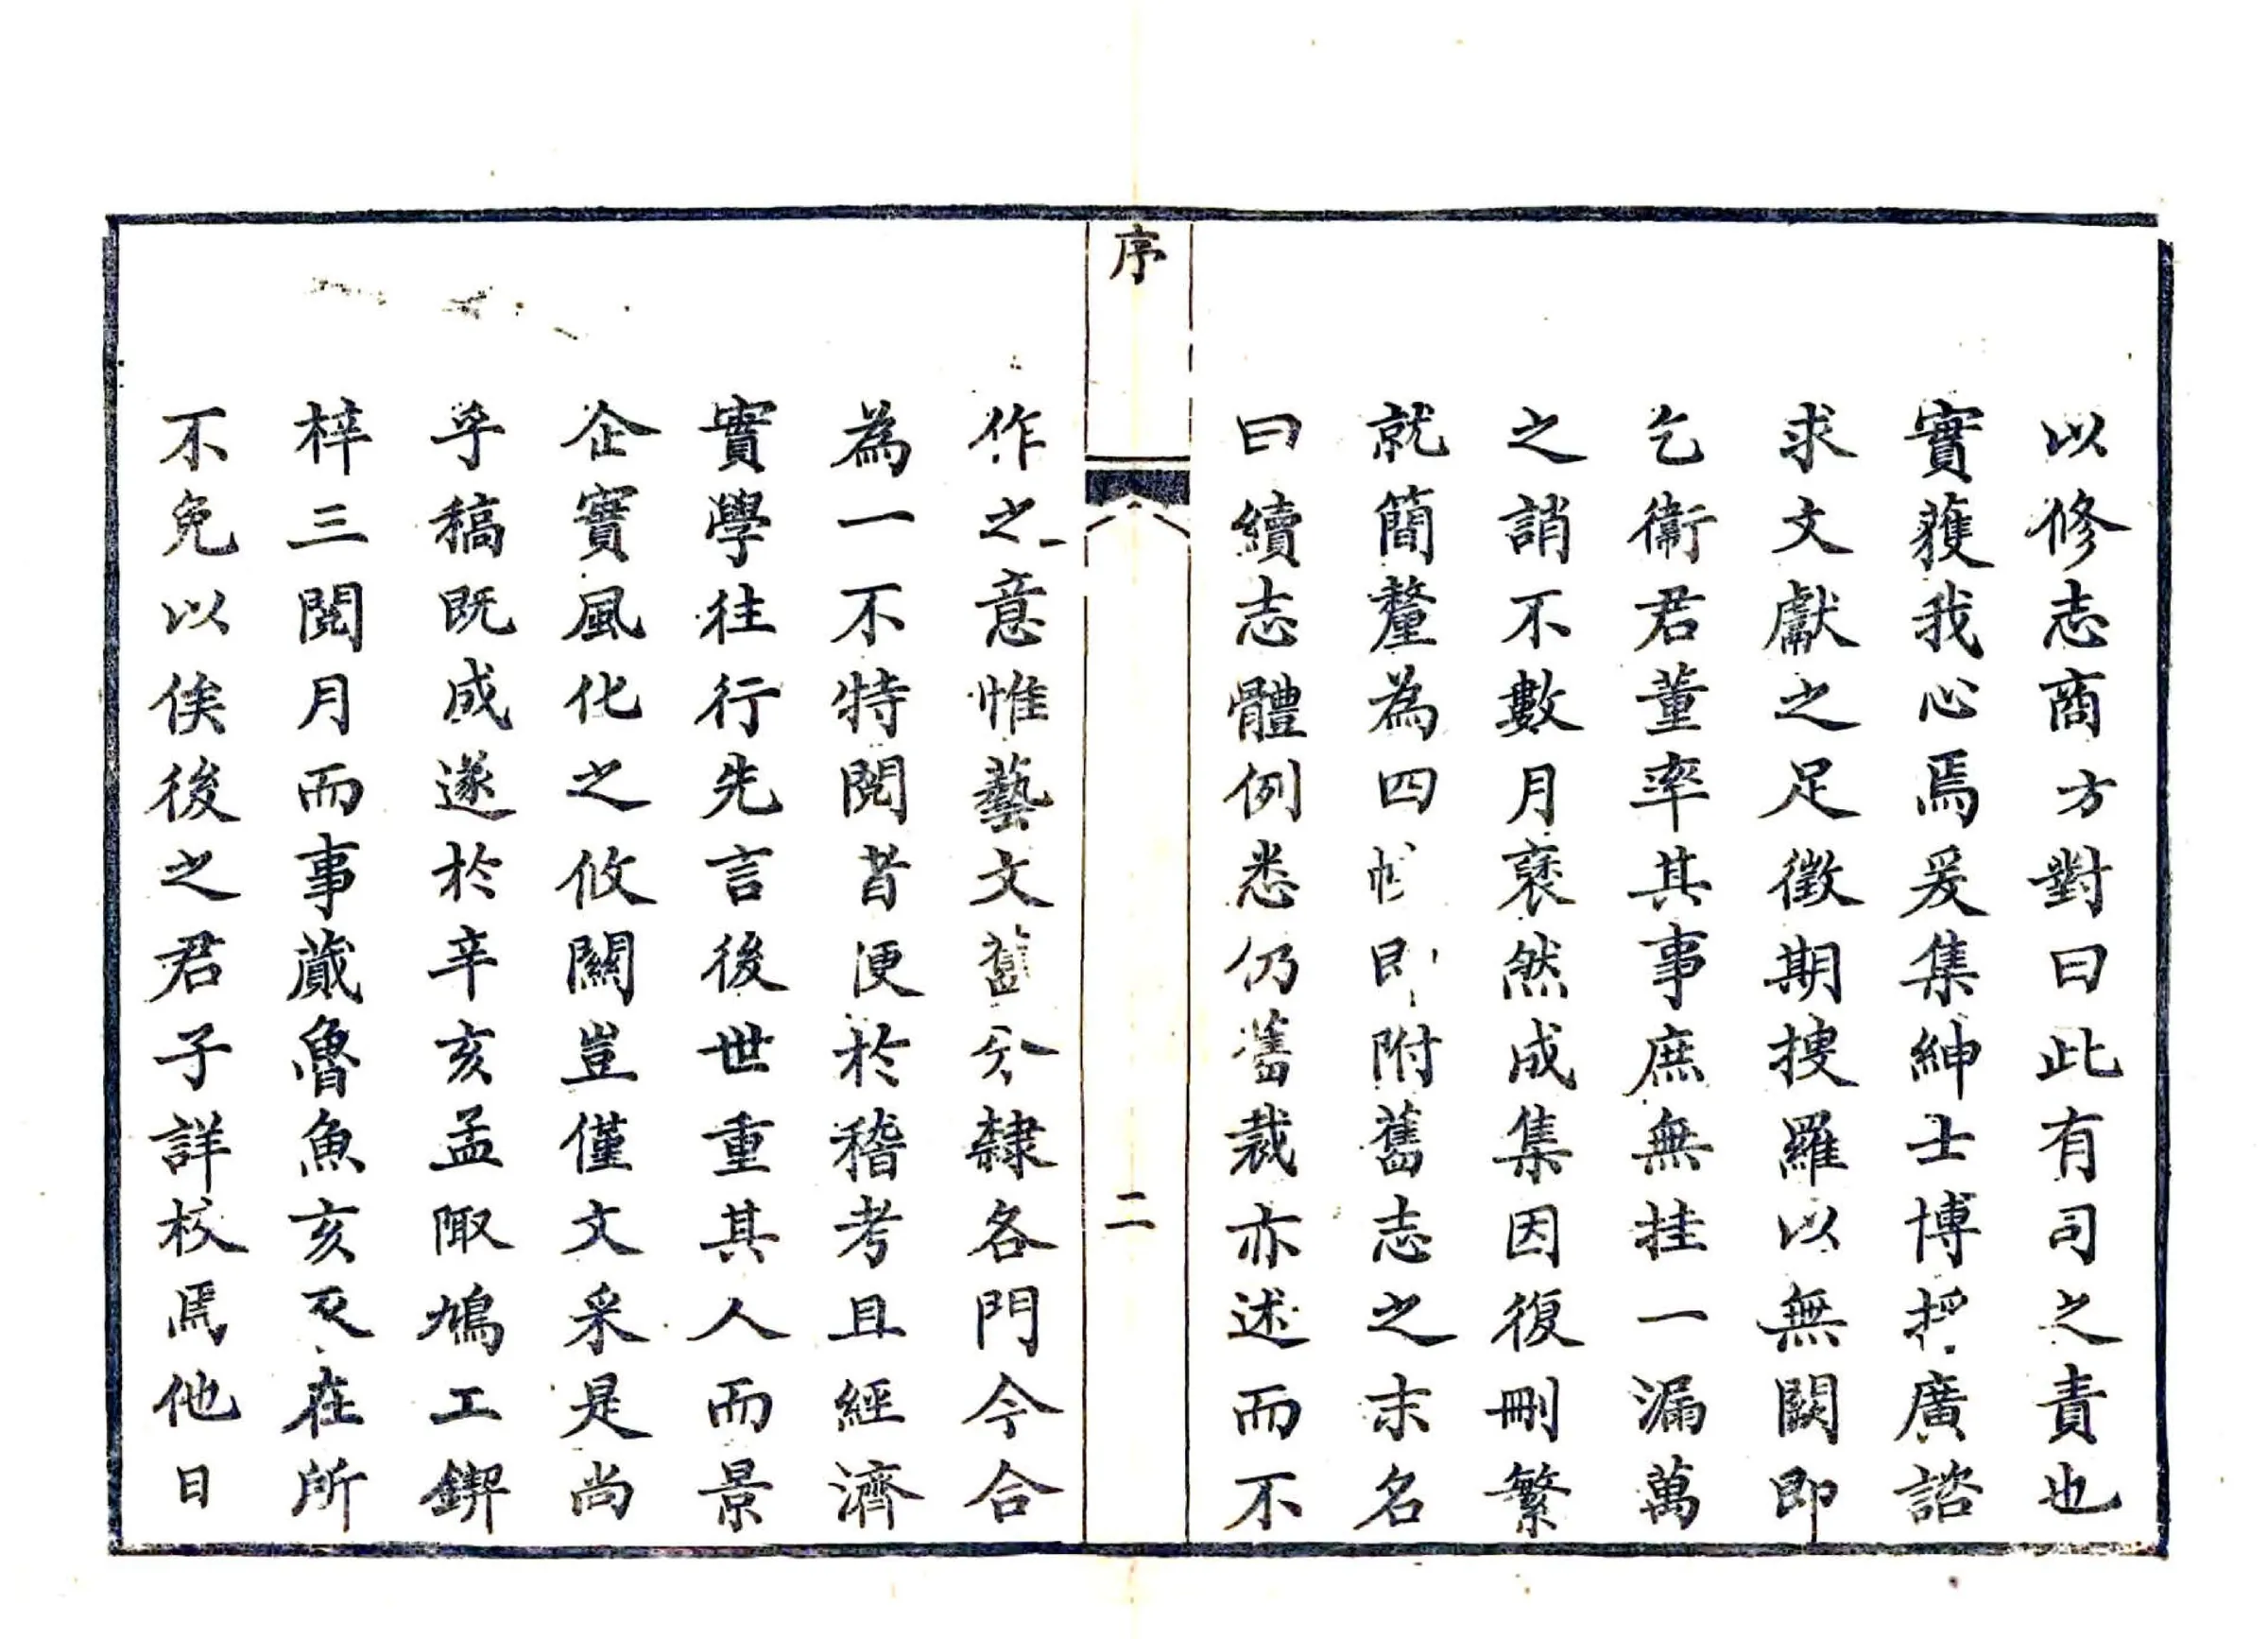 以修志商方對曰此有司之責也
實獲我心焉爰集紳士博採廣諮
求文獻之足徵期搜羅以無闕即
乞衞君董率其事庶無挂一漏萬
之誚不數月裒然成集因復刪繁
就簡釐為四帙即附舊志之末名
曰續志體例悉仍舊裁亦述而不
序
二
作之意惟藝文舊分隸各門今合
為一不特閱者便於稽考且經濟
實學往行先言後世重其人而景
企實風化之攸關豈僅文采是尚
乎稿既成遂於辛亥孟陬鳩工鍥
梓三閱月而事蕆魯魚亥豕在所
不免以俟後之君子詳校焉他日